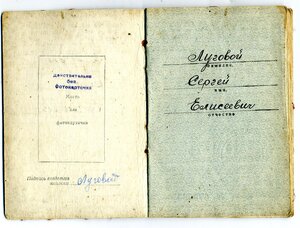 действительна
без
фотокарточки
Место
для
фотокарточки
Подпись владельца
книжки Луговой
Луговой
фамилия,
Сергей
имя,
Елисеевич
отчество